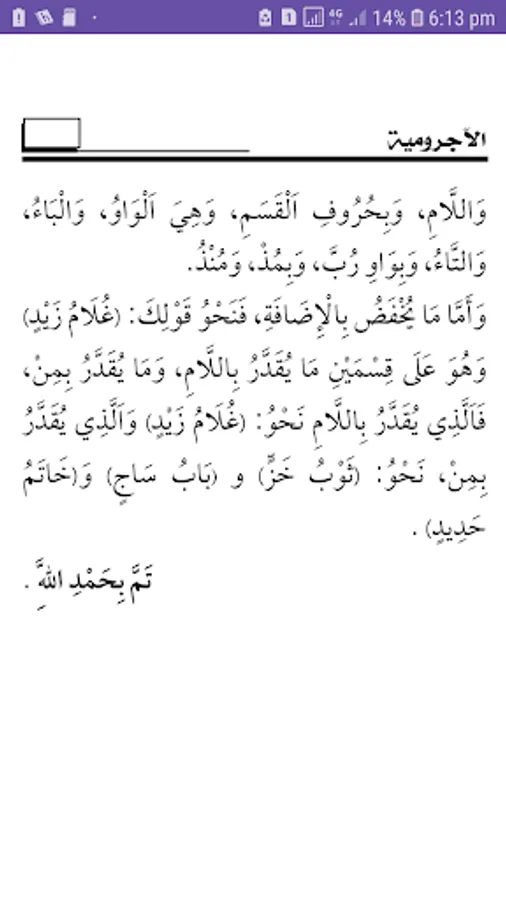 14% 6:13 pm
الآجرومية
وَاللَّامِ، وَبِحُرُوفِ اَلْقَسَمِ، وَهِيَ اَلْوَاوُ، وَالْبَاءُ،
وَالتَّاءُ، وَبِوَاوِ رُبَّ، وَبِمُذْ، وَمُنْذُ.
وَأَمَّا مَا يُخْفَضُ بِالْإِضَافَةِ، فَنَحْوُ قَوْلِكَ: (غُلَامُ زَيْدٍ)
وَهُوَ عَلَى قِسْمَيْنِ مَا يُقَدَّرُ بِاللَّامِ، وَمَا يُقَدَّرُ بِمِنْ،
فَاَلَّذِي يُقَدَّرُ بِاللَّامِ نَحْوُ: (غُلَامُ زَيْدٍ) وَاَلَّذِي يُقَدَّرُ
بِمِنْ، نَحْوُ: (ثَوْبُ خَزٍّ) و (بَابُ سَاجٍ) وَ(خَاتَمُ
حَدِيدٍ) .
تَمَّ بِحَمْدِ اللهَِّ .